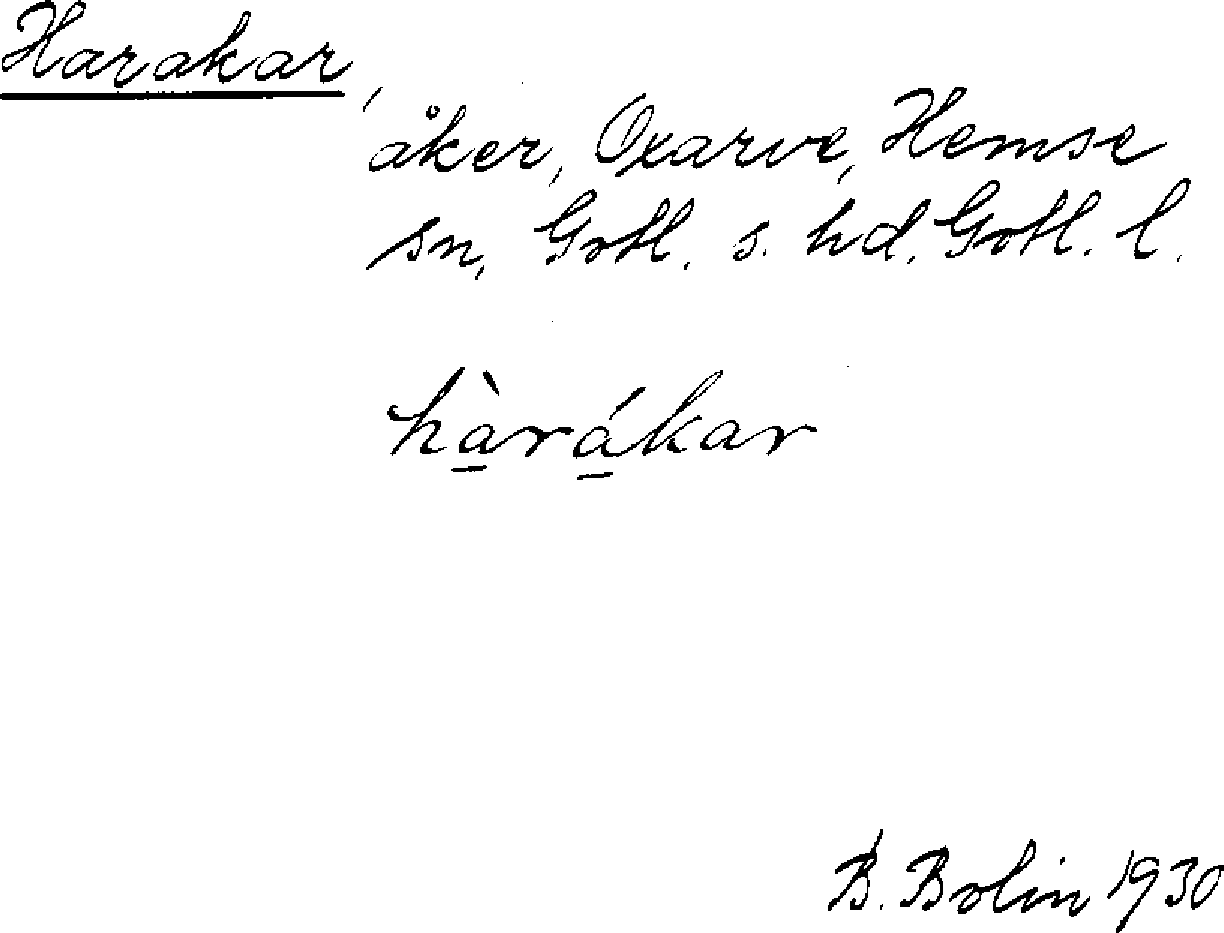 Harakar,
åker, Oxarve, Hemse
sn, Gotl. s. hd. Gotl. l.
hà̱rá̱kar
B. Bolin 1930